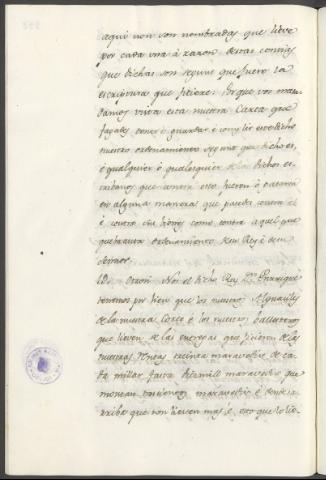 aqui non son nombradas que lieve
por cada una à razon destas contias
que dichas son segund que fuere la
escriptura que ficiere. Porque vos man
damos vista esta nuestra Carta que
fagades tener è guardar è complir este dicho
nuestro ordenamiento segund que dicho es,
è qualquier ò qualesquier de los dichos es-
cribanos que contra esto fueren ò pasaren
en alguna manera que pasedes contra el
è contra sus bienes como contra aquel que
quebranta ordenamiento de su Rey è de su
Señor.
Otrosi Nos el dicho Rey Dn. Enrrique
tenemos por bien que los nuestros Alguaciles
de la nuestra Corte è los nuestros ballesteros
que lieven de las entregas que ficieren de las
nuestras Rentas treinta maravedis de ca-
da millar fasta diez mill maravedis que
montan trecientos maravedis è dende
arriba que non lieven mas è esto que lo lie-